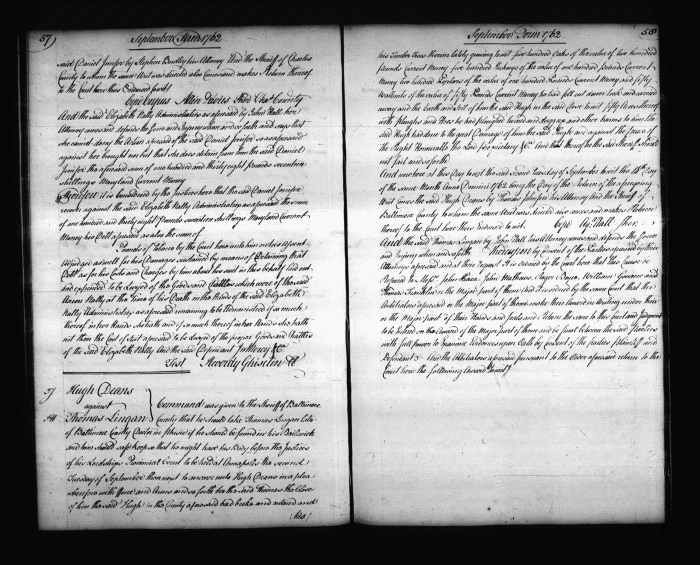 57
September Term 1762
said Daniel Jenifer by Stephen Bordley his Attorney And the Sheriff of Charles
County to whom the same Writ was directed also comes and makes Return thereof
to the Court here thus Endorsed
Cepi Corpus Allen Davies Shff Chas County
And the said Elizabeth Nally Administratrix as aforesaid by John Hall her
Attorney comes and defends the force and Injury when and so forth and says that
she cannot deny the Action aforesaid of the said Daniel Jenifer so as aforesaid
against her brought nor but that she does detain from him the said Daniel
Jenifer the aforesaid sum of one hundred and thirty eight pounds seventeen
shillings Maryland Current Money
Therefore it is Considered by the Justices here that the said Daniel Jenifer
recover against the said Elizabeth Nally Administratrix as aforesaid the sum
of one hundred and thirty eight Pounds seventeen shillings Maryland Current
Money his Debt aforesaid as also the sum of
Pounds of Tobacco by the Court here unto him on his Assent
Adjudged as well for his Damages sustained by means of Detaining that
Debt as for his Costs and Charges by him about his suit in this behalf laid out
and expended to be Levyed of the Goods and Chattles which were of the said
Aaron Nally at the time of his Death in the Hands of the said Elizabeth
Nally Administratrix as aforesaid remaining to be Administred if so much
thereof in her Hands she hath and if so much thereof in her Hands she hath
not then the Cost of Suit aforesaid to be Levyed of the proper Goods and Chattles
of the said Elizabeth Nally And the said Defendant In Mercy &c
Test Reverdy Ghiselin Clk
57
Hugh Deans
against
Thomas Lingan
Command was given to the Sheriff of Baltimore
County that he should take Thomas Lingan late
of Baltimore County if he should be found in his Bailiwick
and him should safe keep so that he might have his Body before the Justices
of his Lordships Provincial Court to be held at Annapolis the second
Tuesday of September then next to answer unto Hugh Deans in a plea
wherefore with force and Arms and so forth he the said Thomas the Close
of him the said Hugh in the County aforesaid had broke and entered and
his
September Term 1762
58
his Timber Trees therein lately growing to wit five hundred Oaks of the value of two hundred
pounds Current Money five hundred Hickorys of the value of one hundred pounds Current
Money two hundred Poplars of the value of one hundred Pounds Current Money and fifty
Wallnuts of the value of fifty Pounds Current Money he had fell cut down took and carried
away and the Earth and Soil of him the said Hugh in the said Close to wit fifty Acres thereof
with ploughs and Hoes he had ploughed turned and dug up and other harms to him the
said Hugh had done to the great Damage of him the said Hugh and against the peace of
the Right Honourable the Lord Proprietary &c And that thereof he the said Sheriff should
not fail and so forth
And now here at this Day to wit the said second Tuesday of September to wit the 14th Day
of the same Month Anno Domini 1762 being the Day of the Return of the foregoing
Writ Comes the said Hugh Deans by Thomas Johnson his Attorney And the Sheriff of
Baltimore County to whom the same Writ was directed also comes and makes Return
thereof to the Court here thus Endorsed to wit Cepi Aq: Hall Sher.
And the said Thomas Lingan by John Hall his Attorney comes and defends the force
and Injury when and so forth Whereupon by Consent of the Parties aforesaid by their
Attorneys aforesaid and at their Request It is Ordered by the Court here that this Cause be
Referred to Messrs John Mathews William Govane and
Thomas Franklin or the Major part of them And it is ordered by the same Court that the
Arbitrators aforesaid or the Major part of them make their Award in Writing under their
or the Major part of their Hands and Seals and Return the same to this Court and Judgment
to be Entered on the Award of the Major part of them and be final between the said Parties
with full power to Examine Evidences upon Oath by Consent of the parties Plaintiff and
Defendant And the Arbitrators aforesaid pursuant to the Order aforesaid return to the
Court here the following Award to wit